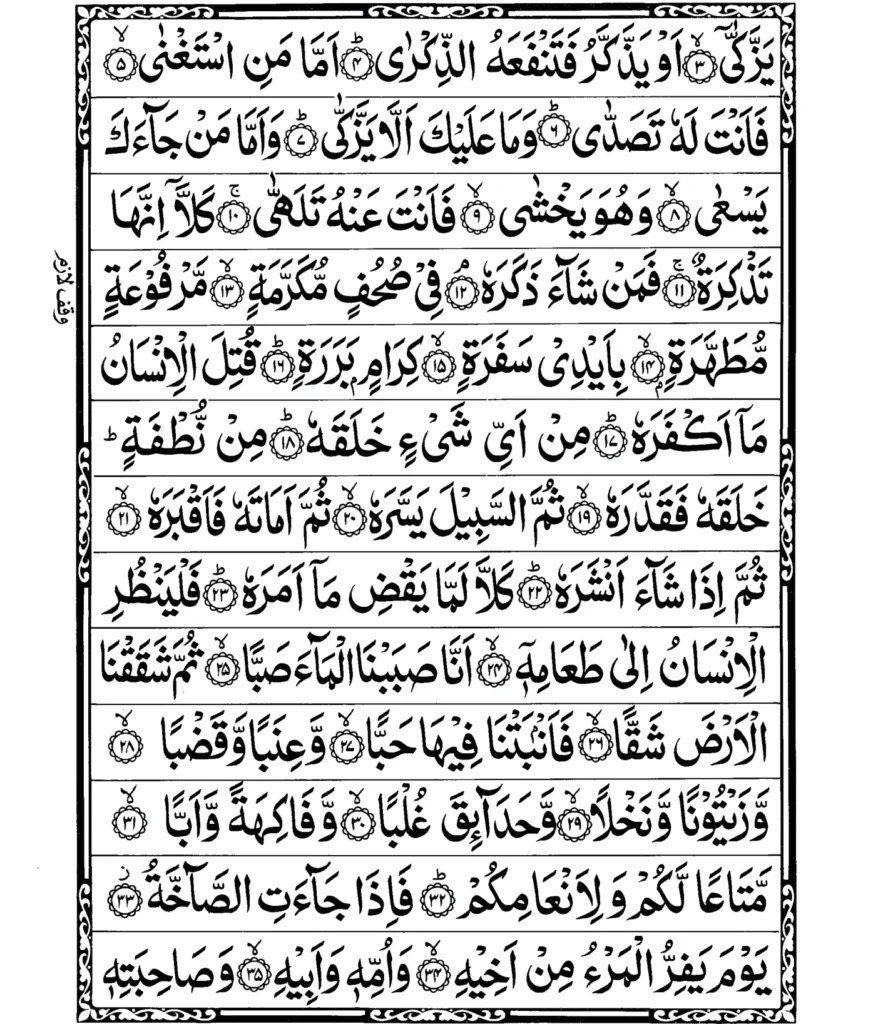 يَزَّكّٰۤى ۙ﴿۳﴾ اَوْ يَذَّكَّرُ فَتَنْفَعَهُ الذِّكْرٰى ؕ﴿۴﴾ اَمَّا مَنِ اسْتَغْنٰى ۙ﴿۵﴾
فَاَنْتَ لَهٗ تَصَدّٰى ؕ﴿۶﴾ وَمَا عَلَيْكَ اَلَّا يَزَّكّٰى ؕ﴿۷﴾ وَاَمَّا مَنْ جَآءَكَ
يَسْعٰى ۙ﴿۸﴾ وَهُوَ يَخْشٰى ۙ﴿۹﴾ فَاَنْتَ عَنْهُ تَلَهّٰى ۚ﴿۱۰﴾ كَلَّاۤ اِنَّهَا
تَذْكِرَةٌ ۚ﴿۱۱﴾ فَمَنْ شَآءَ ذَكَرَهٗ ۘ﴿۱۲﴾ فِيْ صُحُفٍ مُّكَرَّمَةٍ ۙ﴿۱۳﴾ مَّرْفُوْعَةٍ
وقف لازم
مُّطَهَّرَةٍۭ ۙ﴿۱۴﴾ بِاَيْدِيْ سَفَرَةٍ ۙ﴿۱۵﴾ كِرَامٍۭ بَرَرَةٍ ؕ﴿۱۶﴾ قُتِلَ الْاِنْسَانُ
مَاۤ اَكْفَرَهٗ ؕ﴿۱۷﴾ مِنْ اَيِّ شَيْءٍ خَلَقَهٗ ؕ﴿۱۸﴾ مِنْ نُّطْفَةٍ ؕ
خَلَقَهٗ فَقَدَّرَهٗ ۙ﴿۱۹﴾ ثُمَّ السَّبِيْلَ يَسَّرَهٗ ۙ﴿۲۰﴾ ثُمَّ اَمَاتَهٗ فَاَقْبَرَهٗ ۙ﴿۲۱﴾
ثُمَّ اِذَا شَآءَ اَنْشَرَهٗ ؕ﴿۲۲﴾ كَلَّا لَمَّا يَقْضِ مَاۤ اَمَرَهٗ ؕ﴿۲۳﴾ فَلْيَنْظُرِ
الْاِنْسَانُ اِلٰى طَعَامِهٖۤ ۙ﴿۲۴﴾ اَنَّا صَبَبْنَا الْمَآءَ صَبًّا ۙ﴿۲۵﴾ ثُمَّ شَقَقْنَا
الْاَرْضَ شَقًّا ۙ﴿۲۶﴾ فَاَنْۢبَتْنَا فِيْهَا حَبًّا ۙ﴿۲۷﴾ وَّعِنَبًا وَّقَضْبًا ۙ﴿۲۸﴾
وَّزَيْتُوْنًا وَّنَخْلًا ۙ﴿۲۹﴾ وَّحَدَآئِقَ غُلْبًا ۙ﴿۳۰﴾ وَّفَاكِهَةً وَّاَبًّا ۙ﴿۳۱﴾
مَّتَاعًا لَّكُمْ وَلِاَنْعَامِكُمْ ؕ﴿۳۲﴾ فَاِذَا جَآءَتِ الصَّآخَّةُ ز﴿۳۳﴾
يَوْمَ يَفِرُّ الْمَرْءُ مِنْ اَخِيْهِ ۙ﴿۳۴﴾ وَاُمِّهٖ وَاَبِيْهِ ۙ﴿۳۵﴾ وَصَاحِبَتِهٖ